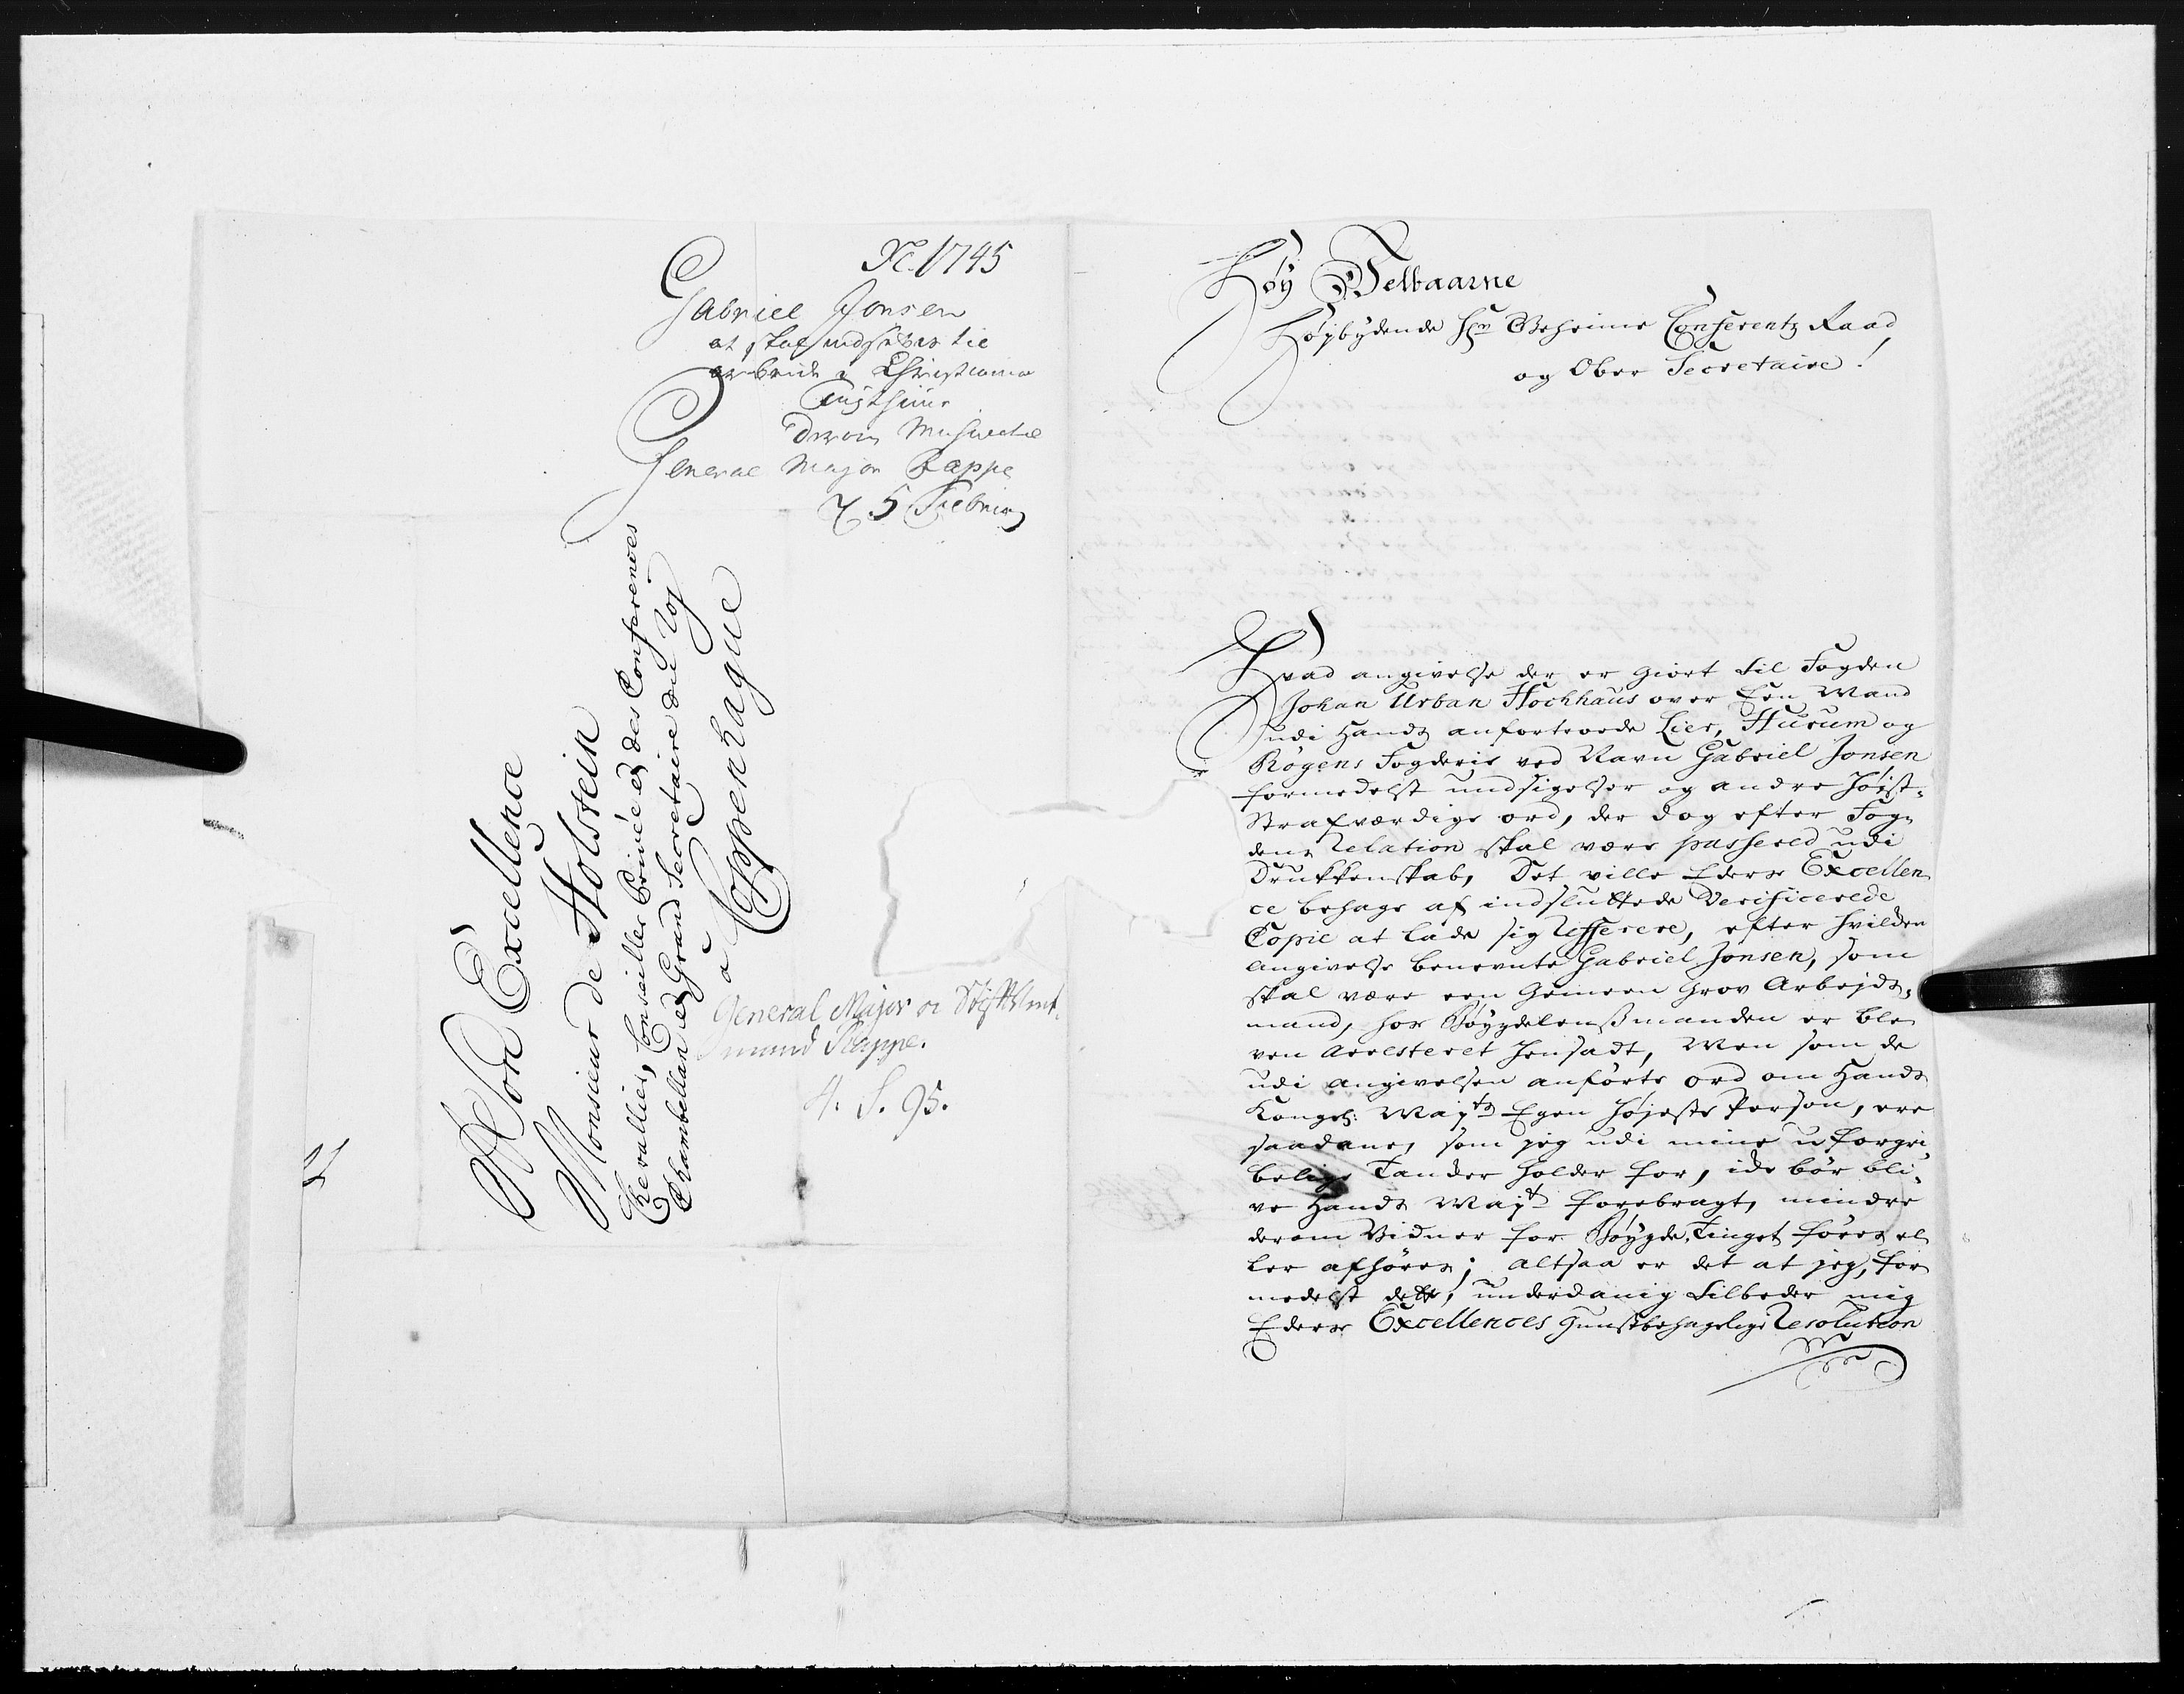 1745
Gabriel Jonsen
at skal indsettes til
arbeide i Christiania
Tugthuus
General Major Rappe
5 Febru
A Son Excellence
Monsieur de Holstein
Chevallier, Conseiller Privée et des Conferences
Chambellan et Grand Secretaire du Roy
a Coppenhague
General Major og Stifft Amt-
mand Rappe.
Høy Velbaarne
Høybydende Hr Geheime Conferentz Raad,
og Ober Secretaire!
Hvad angivelse der er giort til Fogden
Johan Urban Hochhaus over Een Mand
udi Hands anfortroede Lier, Hurum og
Rögens Fogderie ved Navn Gabriel Jonsen
formedelst undsigelser og andre høist-
Strafværdige ord, der dog efter Fog-
dens Relation skal være passered udi
Drukkenskab, Det ville Eders Excellen-
ce behage af indsluttede Verificerede
Copie at lade sig Refferere, efter hvilken
angivelse benevnte Gabriel Jonsen, som
skal være een Gemeen Grov Arbejds-
mand, hos Bøygdelensmanden er ble-
ven Arresteret hensadt, Men som de
udi angivelsen anførte ord om Hands
Kongel: Mayts Egen høyeste Person, ere
saadane, som jeg udi mine uforgri-
belige Tanker holder for, icke bør bli-
ve Hands Mayt forebragt, mindre
derom Vidner for Bøygde Tinget føres el-
ler afhøres; altsaa er det at jeg, for-
medelst dette, underdanig tilbeder mig
Eders Excellences Gunstbehagelige Resolution